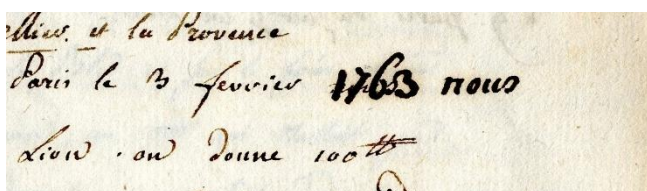 ellier. et la Provence
Paris le 3 fevrier 1763 nous
Lion. on donne 100₶